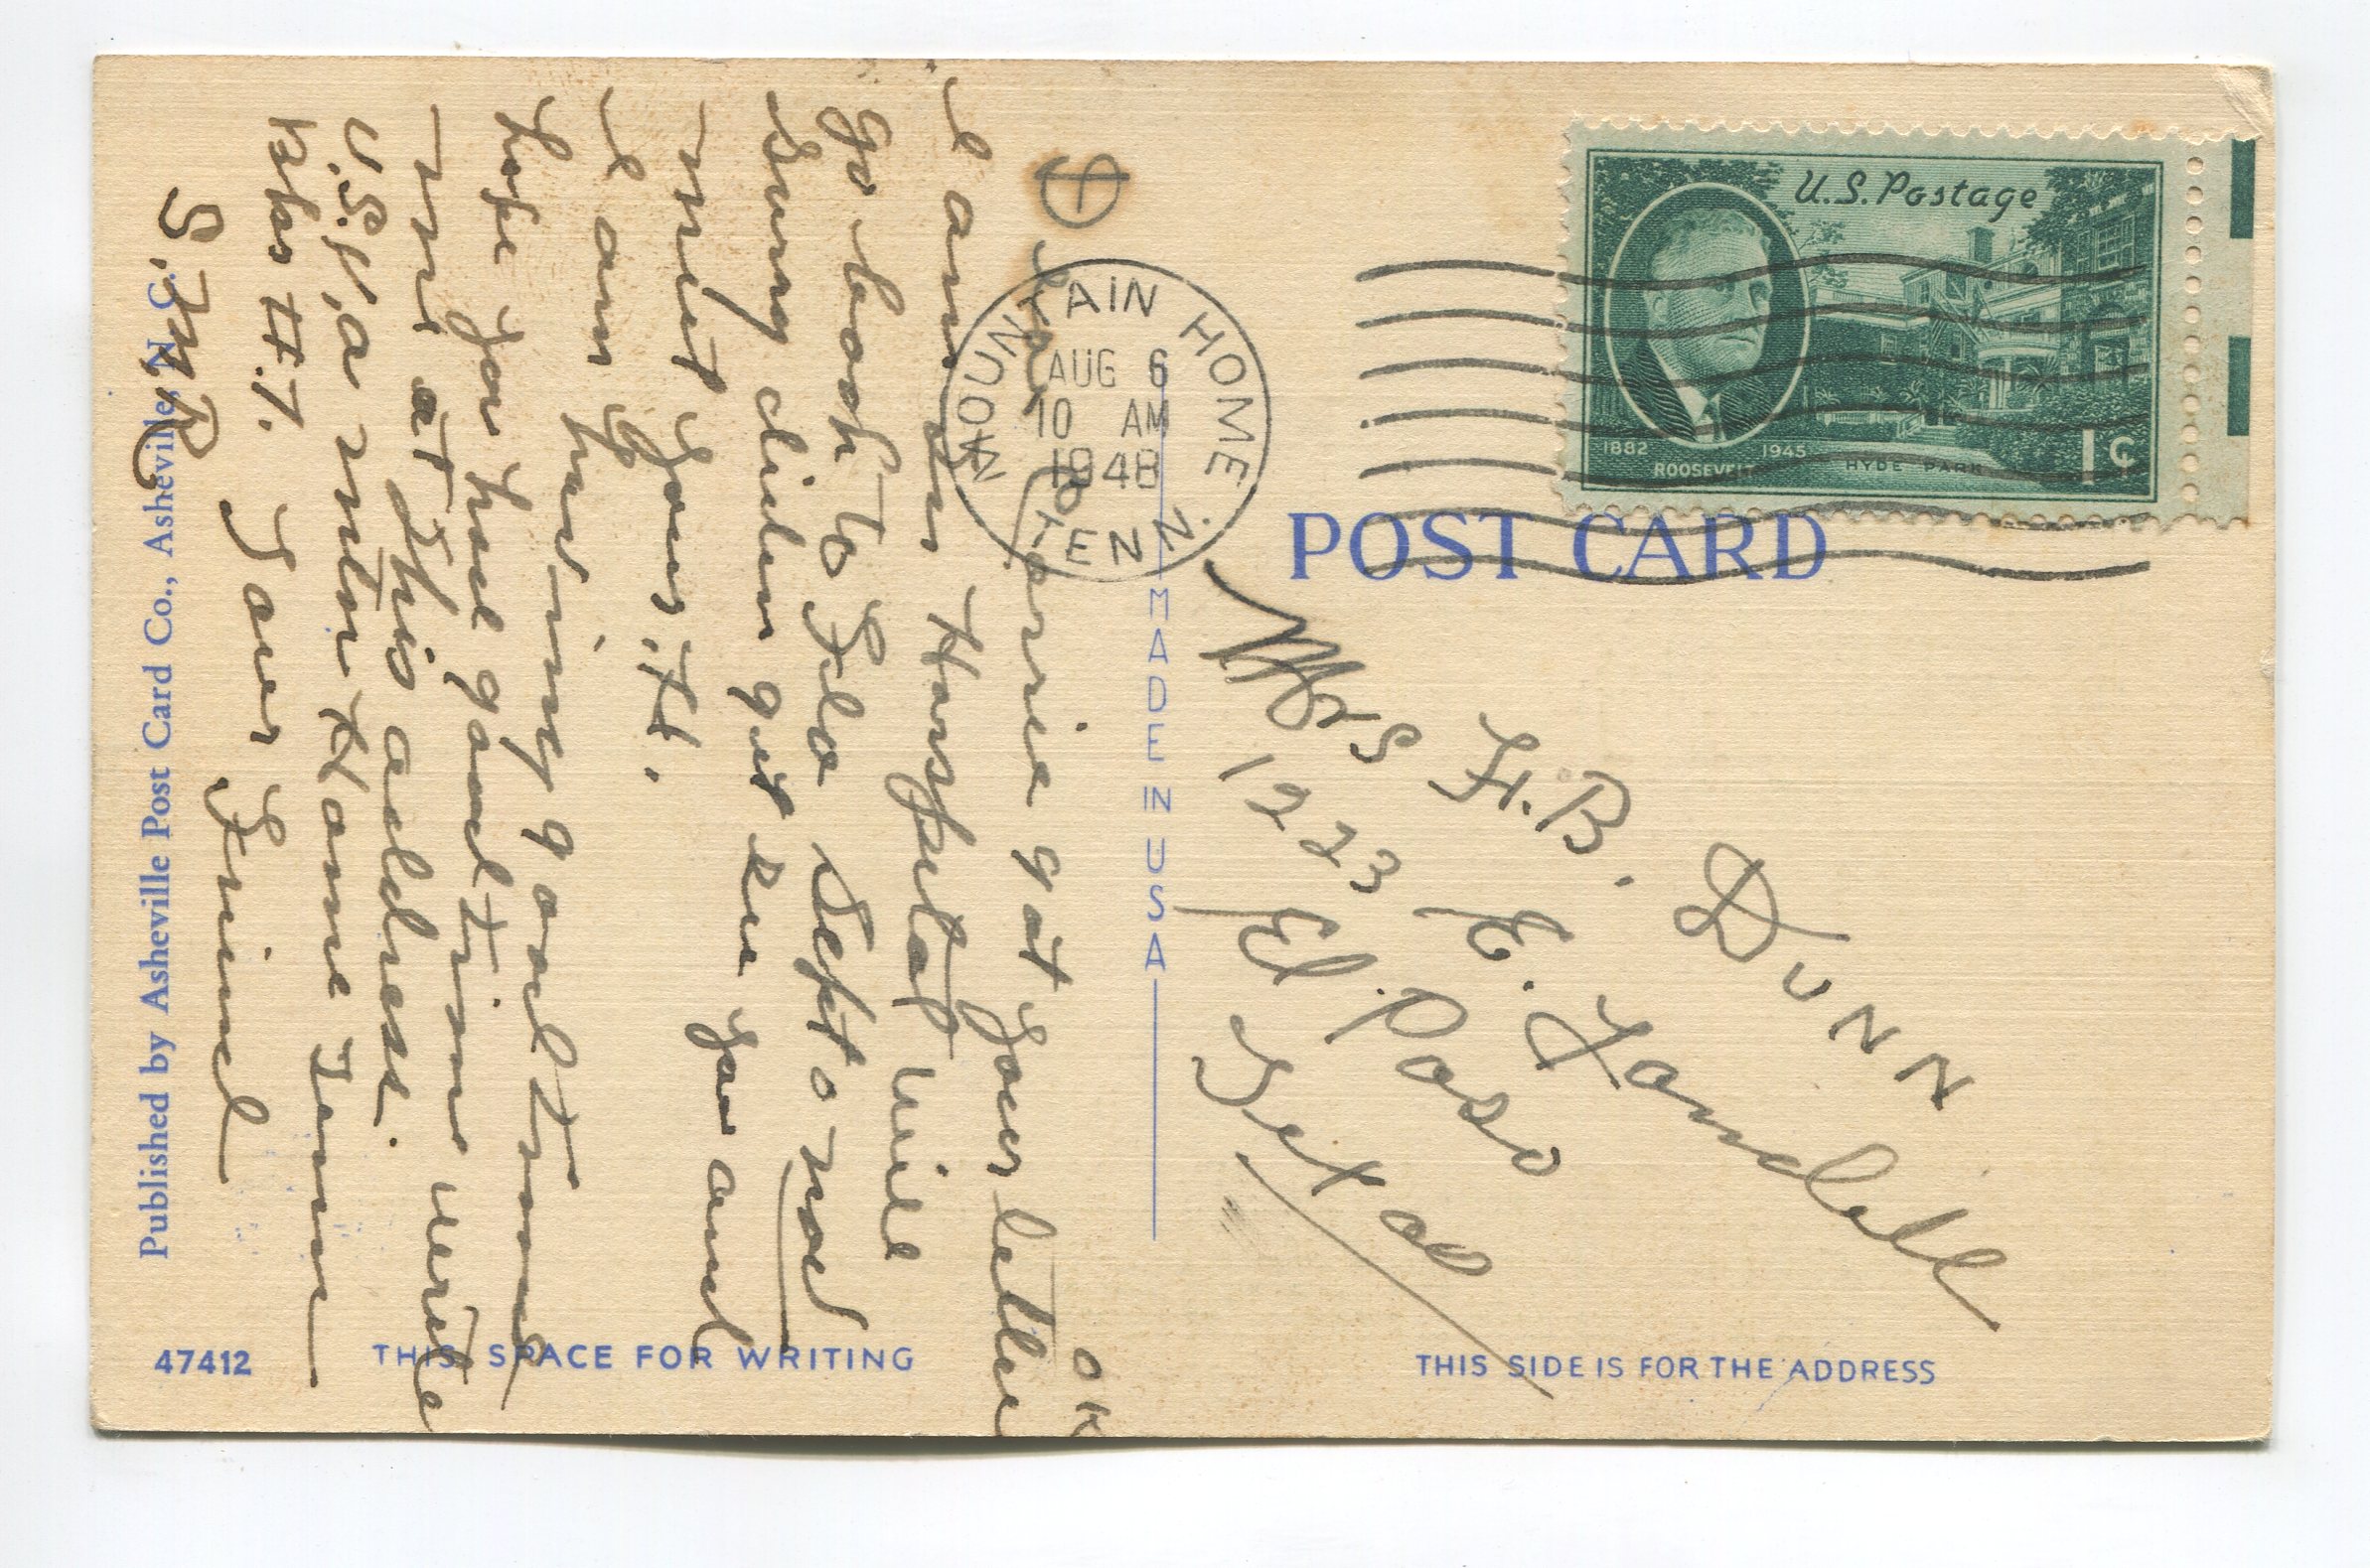 U.S. Postage
1882
1945
ROOSEVELT
HYDE PARK
1¢
MOUNTAIN HOME
TENN.
AUG 6
10 AM
1948
POST CARD
MADE IN USA
Mrs H. B. Dunn
1223 E. Yandell
El. Paso
Texas
THIS SIDE IS FOR THE ADDRESS
Dear got your letter OK
I am in Hospital will
go back to Fla Sept o mod
Sorry diden get see you and
meet your H.
I am hav ing good time
hope you have good time write
me at this address.
U.S.V.a Home Tenn
#.7. Your Friend
Published by Asheville Post Card Co., Asheville, N. C.
47412
THIS SPACE FOR WRITING